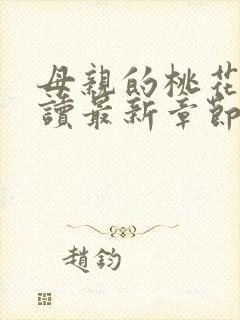 母親的桃花
讀最新章節
趙鈞